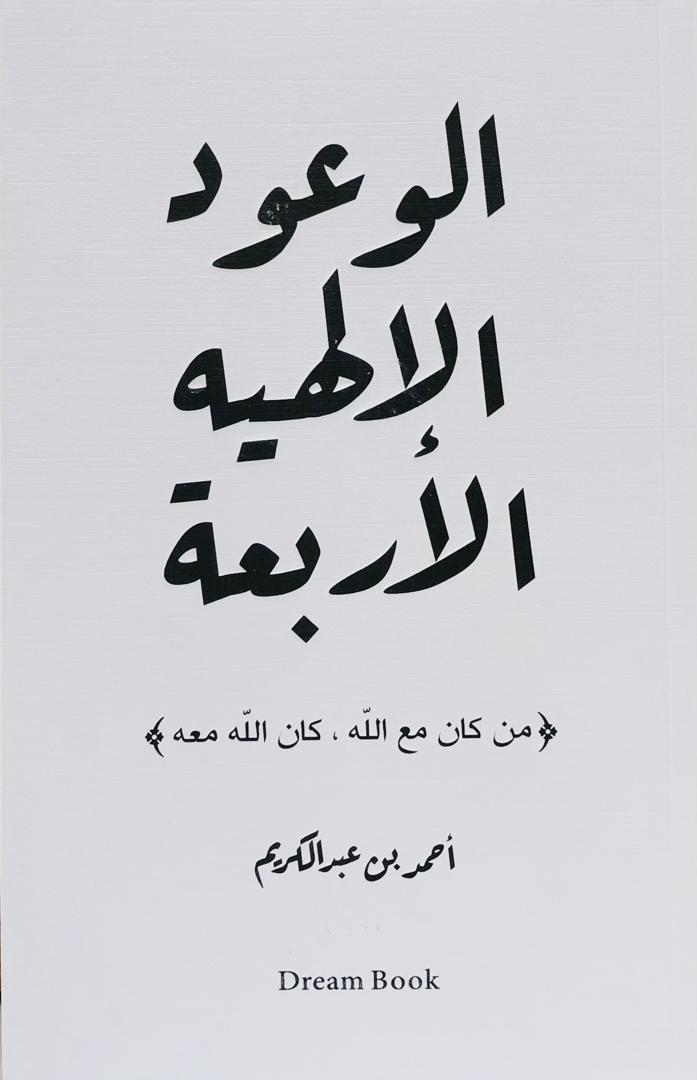 الوعود
الإلهيه
الأربعة
﴿من كان مع اللّه ، كان اللّه معه﴾
أحمد بن عبدالكريم
Dream Book